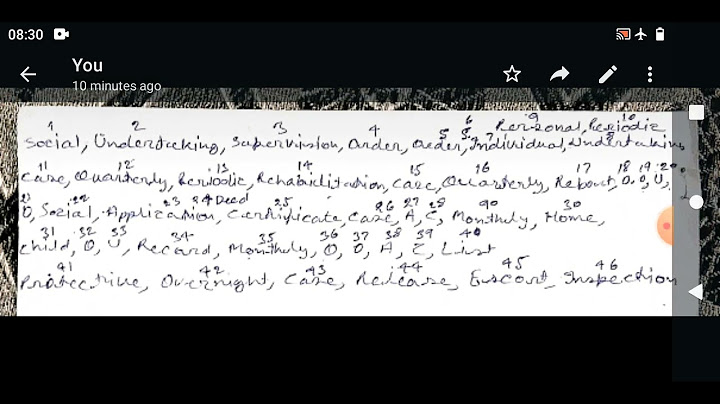 08:30
You
10 minutes ago
1 2 3 4 5 6 7 9 10
Personal, Periodic
Social, Undertaking, Supervision, Order, Order, Individual, Undertaking
11 12 13 14 15 16 17 18 19 20
Case, Quarterly, Periodic, Rehabilitation, Case, Quarterly, Report, O, O, U,
21 22 23 24 Deed 25 26 27 28 90 30
O, Social, Application, Certificate, Case, A, C, Monthly, Home,
31 32 33 34 35 36 37 38 39 40
Child, O, U, Record, Monthly, O, O, A, C, List
41 42 43 44 45 46
Protective, Overnight, Case, Release, Escort, Inspection